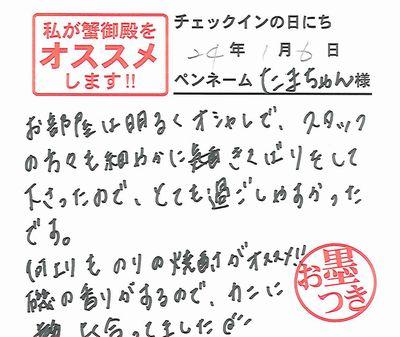 私が蟹御殿を
オススメ
します!!
チェックインの日にち
24年1月6日
ペンネーム たまちゃん様
お部屋は明るくオシャレで、スタッフ
の方々も細やかにきくばりをして
下さったので、とても過ごしやすかった
です。
何よりものりの焼酎がオススメ!!
磯の香りがあるので、カニに
よく合ってました
お墨つき